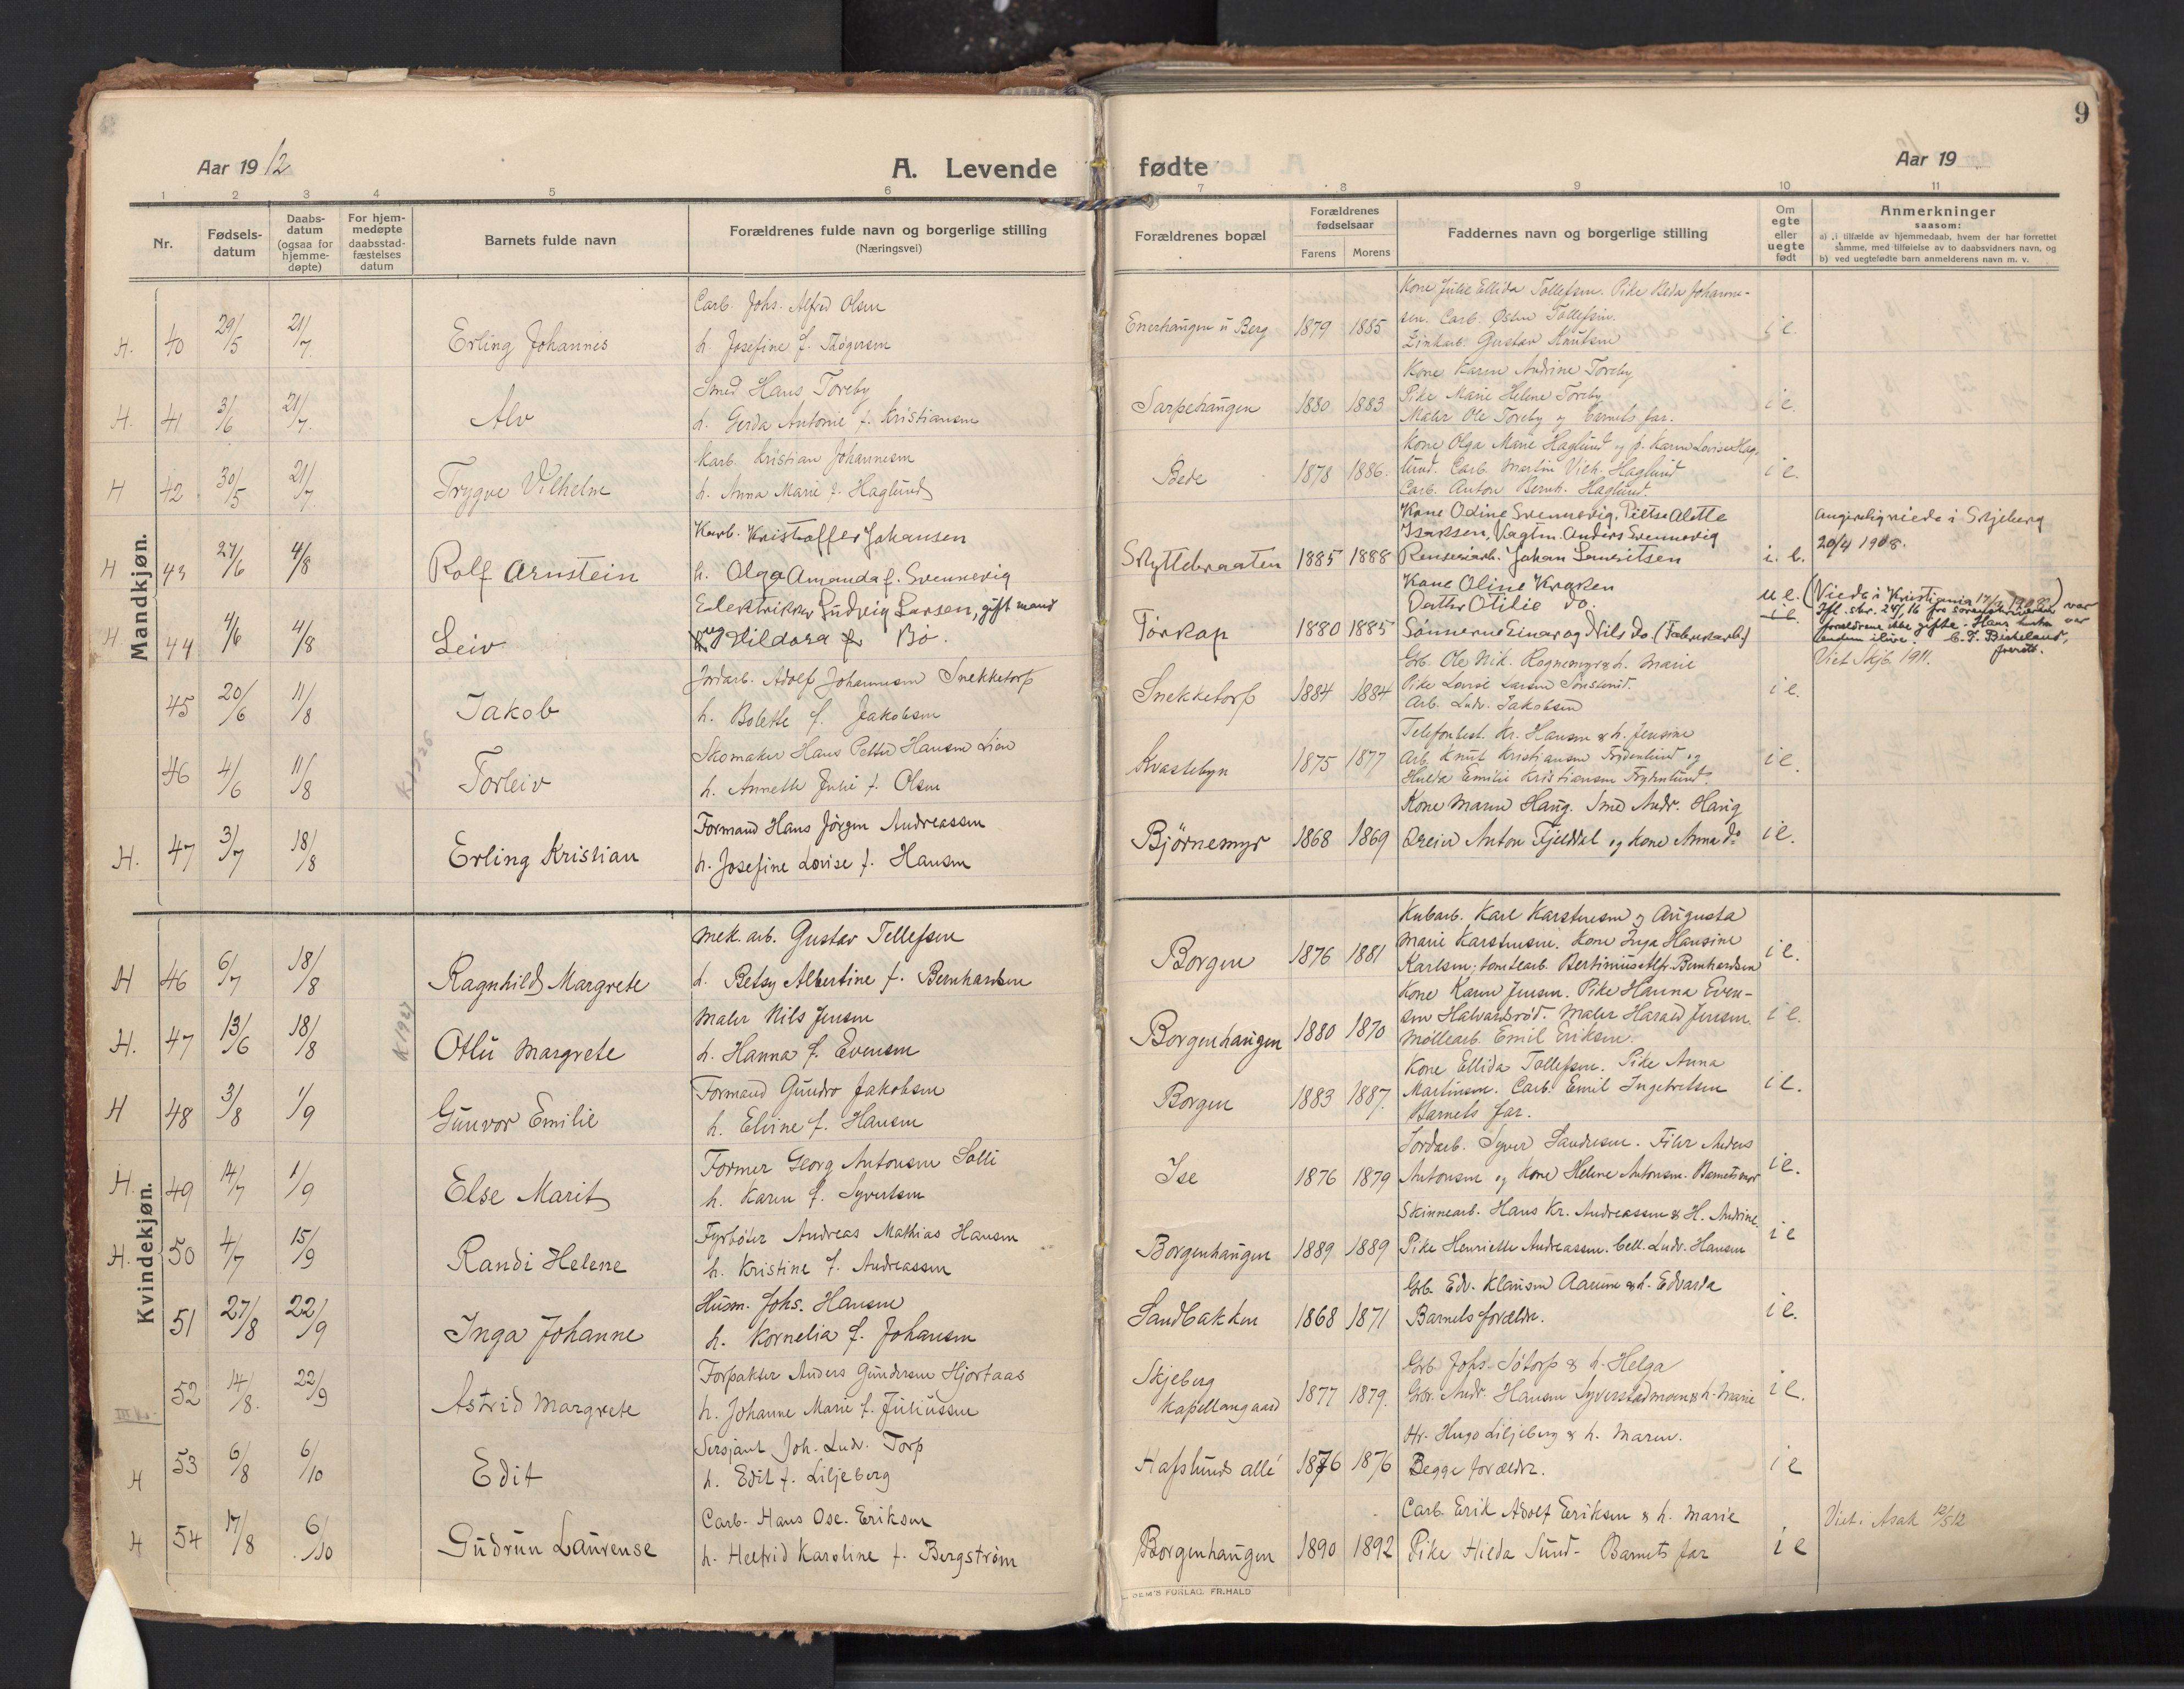 9
Aar 1912
A. Levende
fødte
Aar 19
1 2 3 4 5 6 7 8 9 10 11
Nr.
Fødsels-
datum
Daabs-
datum
(ogsaa for
hjemme-
døpte)
For hjem-
medøpte
daabsstad-
fæstelses
datum
Barnets fulde navn
Forældrenes fulde navn og borgerlige stilling
(Næringsvei)
Forældrenes bopæl
Forældrenes
fødselsaar
Farens Morens
Faddernes navn og borgerlige stilling
Om
egte
eller
uegte
født
Anmerkninger
saasom:
a) i tilfælde av hjemmedaab, hvem der har forrettet
samme, med tilføielse av to daabsvidners navn, og
b) ved uegtefødte barn anmelderens navn m. v.
Mandkjøn.
H. 40 29/5 21/7 Erling Johannes
Carb. Johs. Alfred Olsen
h. Josefine f. Thøgersen
Enerhaugen u Berg 1879 1885
Kone Julie Ellida Tollefsen. Pike Alda Johanne-
sen. Carb. Østen Tollefsen.
Zinkarb. Gustav Knutsen
i e.
H. 41 3/6 21/7. Alv
Smed Hans Toreby
h. Gerda Antonie f. Kristiansen
Sarpehaugen 1880 1883
Kone Karen Andrine Toreby
Pike Marie Helene Toreby
Maler Ole Toreby og barnets far.
i e.
H 42 30/5 21/7 Trygve Vilhelm
Karb. Kristian Johannesen
h. Anna Marie f. Haglund
Bede 1878 1886.
Kone Olga Marie Haglund og p. Karen Lovise Hag-
lund. Carb. Martin Vilh. Haglund
Carb. Anton Bernh. Haglund.
i e.
H 43 27/6 4/8 Rolf Arnstein
Karb. Kristoffer Johansen
h. Olga Amanda f. Svennevig
Skyttebraaten 1885 1888
Kone Odine Svennevig, Alette
Isaksen, Vagtm. Anders Svennevig
Renseriarb. Johan Lauritsen
i. e.
angivelig viede i Skjeberg
20/4 1908.
H 44 4/6 4/8 Leiv
Elektriker Ludvig Larsen, gift mand
Hildora Bø.
Torkap 1880 1885
Kone Oline Kraken
Datter Otilie do.
Sønnerne Einar og Nils do. (Fabrikarb.)
u e.
i e.
(Viede i Kristiania
forældrene ikke gifte. Hans hustru var
Birkeland,
45 20/6 11/8 Jakob
Jordarb. Adolf Johannesen Snekketorp
h. Bolette f. Jakobsen
Snekketorp 1884 1884
Gb. Ole Nik. Rognemyr & h. Marie
Pike Lovise Larsen
Arb. Ludv. Jakobsen
i e.
Viet Skjb. 1911.
46 4/6 11/8 Torleiv
Skomaker Hans Petter Hansen Lien
h. Annette Julie f. Olsen
Kvastebyn 1875 1877
Telefonbest. Kr. Hansen & h. Jensine
Arb. Knut Kristiansen Frydenlund og
Hulda Emilie Kristiansen Frydenlund.
i e.
H. 47 3/7 18/8 Erling Kristian
Formand Hans Jørgen Andreassen
h. Josefine Lovise f. Hansen
Bjørnemyr 1868 1869
Kone Maren Haug. Smed Andr. Haug
Dreier Anton Fjelddal og kone Anna do
i e.
Kvindekjøn.
H 46 6/7 18/8 Ragnhild Margrete
Mek. arb. Gustav Tellefsen
h. Betsy Albertine f. Bernhardsen
Borgen 1876 1881
Kubarb. Karl Karstensen og Augusta
Marie Karstensen. Kone Inga Hansine
Karlsen; tomtearb. Bertinius Alfr. Bernhardsen
i e.
H. 47 13/6 18/8 K1927 Otlu Margrete
Maler Nils Jensen
h. Hanna f. Evensen
Borgenhaugen 1880 1870
Kone Karen Jensen. Pike Hanna Even-
sen Halvardsrød. Maler Harald Jensen
Møllearb. Emil Eriksen.
i e.
H 48 3/8 1/9 Gunvor Emilie
Formand Gundro Jakobsen
h. Elvine f. Hansen
Borgen 1883 1887.
Kone Ellida Tollefsen. Pike Anna
Martinsen. Carb. Emil Ingebretsen
Barnets far.
i e.
H. 49 14/7 1/9 Else Marit
Former Georg Antonsen Solli
h. Karen f. Syvertsen
Ise 1876 1879
Jordarb. Syver Sandersen. Filer Anders
Antonsen og Kone Helene Antonsen. Barnets mor
i e.
H. 50 4/7 15/9 Randi Helene
Fyrbøter Andreas Mathias Hansen
h. Kristine f. Andreassen
Borgenhaugen 1889 1889
Skinnearb. Hans Kr. Andreassen & H. Andrine.
Pike Henriette Andreassen. Cell. Ludv. Hansen
i e
51 27/8 22/9 Inga Johanne
Husm. Johs. Hansen
h. Kornelia f. Johansen
Sandbakken 1868 1871
Gb. Edv. Klausen Aarum & h. Edvarda
Barnets forældre.
i e.
52 14/8. 22/9 Astrid Margrete
Forpakter Anders Gundersen Hjortaas
h. Johanne Marie f. Juliussen
Skjeberg
Kapellangaard 1877 1879.
Gb. Johs. Søtorp & h. Helga
Gbr. Andr. Hansen Syverstadmoen & h. Marie
i e.
H 53 6/8 6/10 Edit
Sersjant Joh. Ludv. Torp
h. Edit f. Liljeberg
Hafslunds allé 1876 1876
Hr. Hugo Liljeberg & h. Maren.
Begge forældre.
i e
H 54 17/8 6/10 Gudrun Laurense
Carb. Hans Ose. Eriksen
h. Helfrid Karoline f. Bergstrøm
Borgenhaugen 1890 1892
Carb. Erik Adolf Eriksen & h. Marie
Pike Hilda Sund - Barnets far
i e
Viet. Asak 12/5 12
FORLAG. FR. HALD